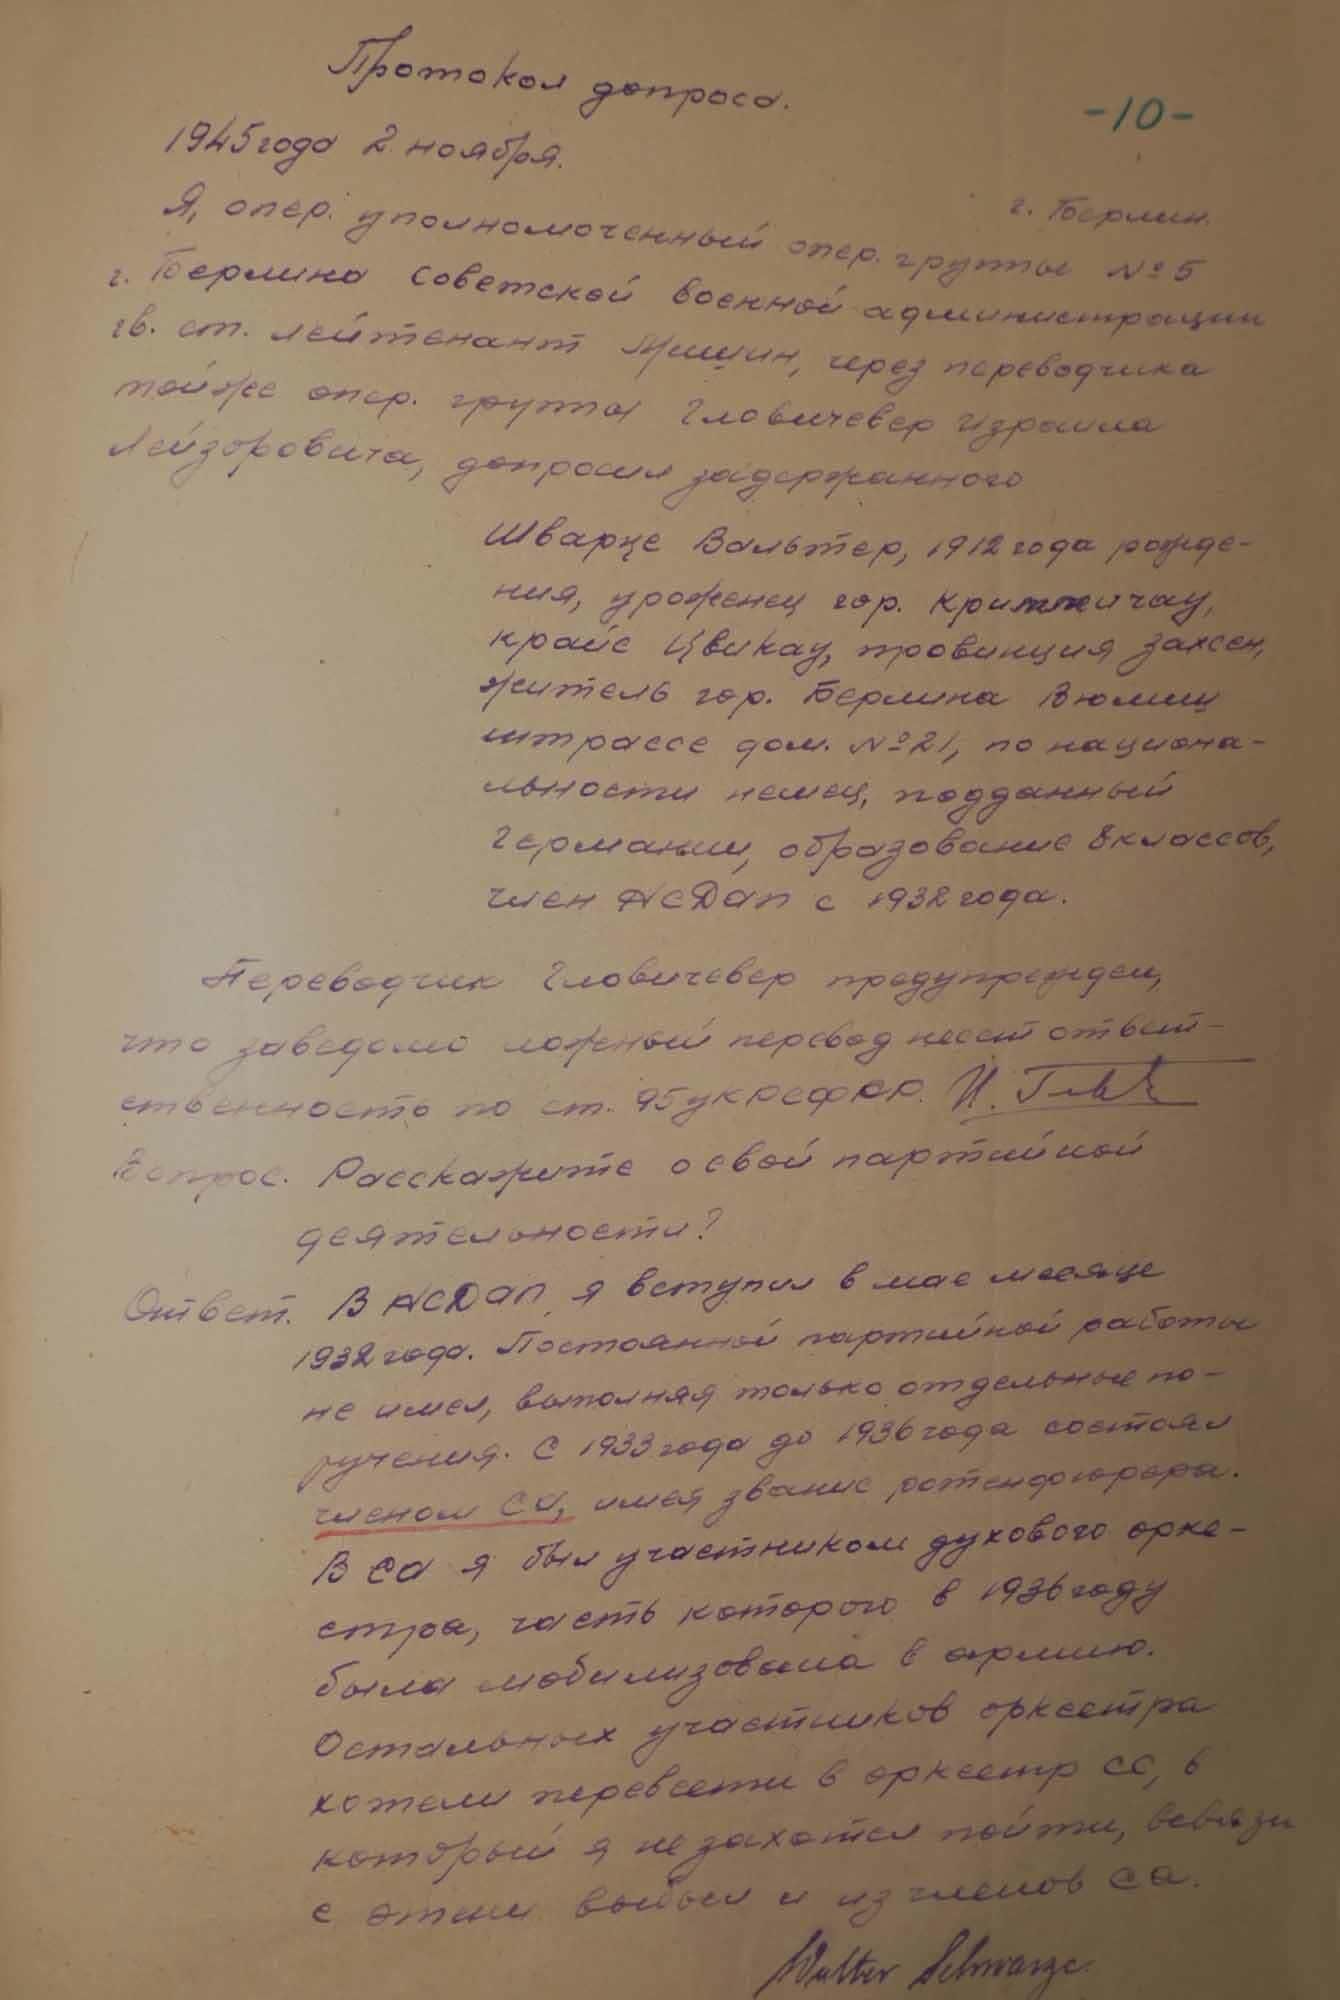 Протокол допроса.
-10-
1945 года 2 ноября.
г. Берлин.
Я, опер. уполномоченный опер. группы №5
г. Берлина Советской военной администрации
гв. ст. лейтенант Жишин, через переводчика
тойже опер. группы Гловичевер Израила
Лейзоровича, допросил задержанного
Шварце Вальтер, 1912 года рожде-
ния, уроженец гор. Криммичау,
крайс Цвикау, провинция Захсен,
житель гор. Берлина Вюлиш
штрассе дом. №21, по национа-
льности немец, подданный
Германии, образование 8 классов,
член НСДАП с 1932 года.
Переводчик Гловичевер предупрежден,
что заведомо ложный перевод несет ответ-
ственность по ст. 95 УК РСФСР.
Вопрос. Расскажите о свой партийной
деятельности?
Ответ. В НСДАП я вступил в мае месяце
1932 года. Постоянной партийной работы
не имел, выполняя только отдельные по-
ручения. С 1933 года до 1936 года состоял
членом СА, имея звание ротенфюрера.
В СА я был участником духового орке-
стра, часть которого в 1936 году
была мобилизована в армию.
Остальных участников оркестра
хотели перевести в оркестр СС, в
который я не захотел пойти, всвязи
с этим выбыл и из членов СА.
Walter Schwarze.